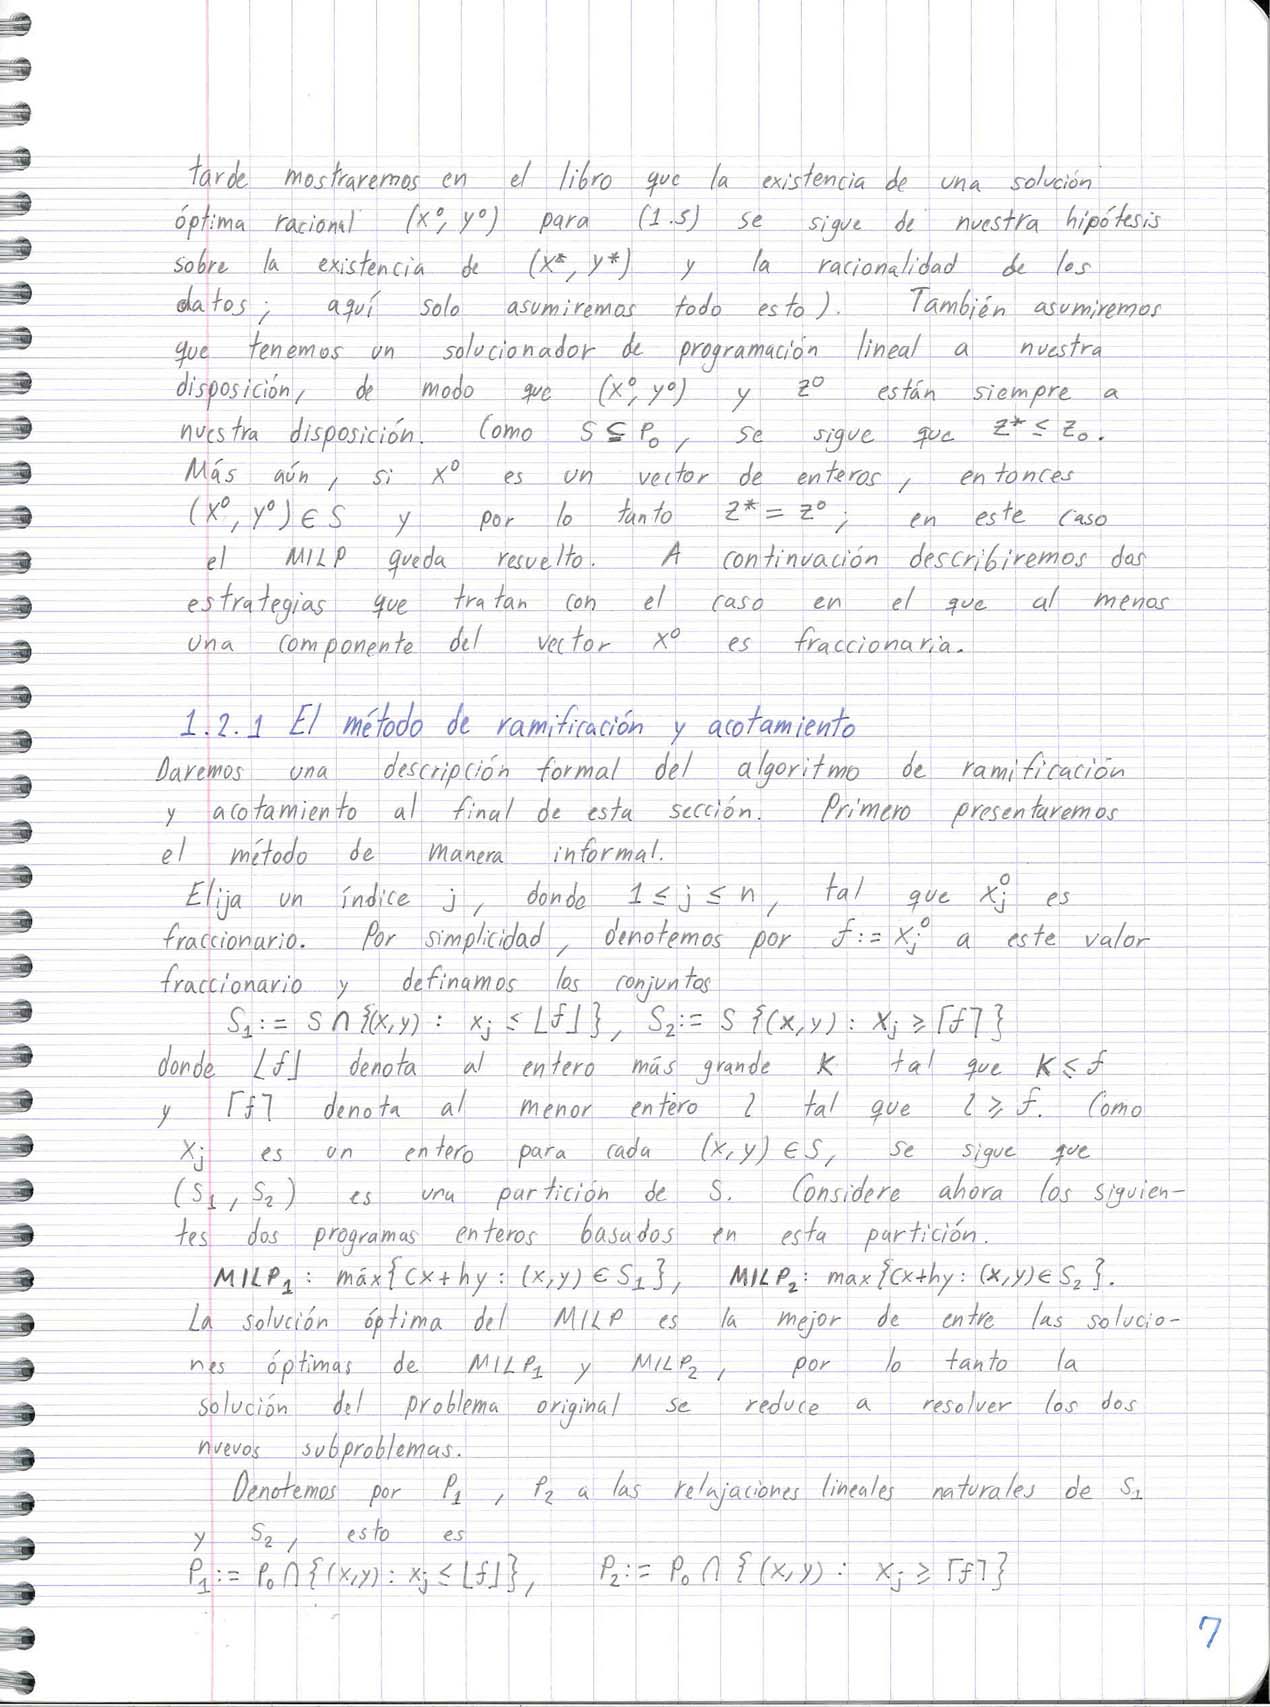 tarde mostraremos en el libro que la existencia de una solución
óptima racional (x⁰, y⁰) para (1.5) se sigue de nuestra hipótesis
sobre la existencia de (x*, y*) y la racionalidad de los
datos; aquí solo asumiremos todo esto). También asumiremos
que tenemos un solucionador de programación lineal a nuestra
disposición, de modo que (x⁰, y⁰) y z⁰ están siempre a
nuestra disposición. Como S ⊆ P₀, se sigue que z* ≤ z₀.
Más aún, si x⁰ es un vector de enteros, entonces
(x⁰, y⁰) ∈ S y por lo tanto z* = z⁰; en este caso
el MILP queda resuelto. A continuación describiremos dos
estrategias que tratan con el caso en el que al menos
una componente del vector x⁰ es fraccionaria.
1.2.1 El método de ramificación y acotamiento
Daremos una descripción formal del algoritmo de ramificación
y acotamiento al final de esta sección. Primero presentaremos
el método de manera informal.
Elija un índice j, donde 1 ≤ j ≤ n, tal que xⱼ⁰ es
fraccionario. Por simplicidad, denotemos por f := xⱼ⁰ a este valor
fraccionario y definamos los conjuntos
S₁ := S ∩ {(x,y) : xⱼ ≤ ⌊f⌋}, S₂ := S {(x,y) : xⱼ ≥ ⌈f⌉}
donde ⌊f⌋ denota al entero más grande K tal que K ≤ f
y ⌈f⌉ denota al menor entero l tal que l ≥ f. Como
xⱼ es un entero para cada (x,y) ∈ S, se sigue que
(S₁, S₂) es una partición de S. Considere ahora los siguien-
tes dos programas enteros basados en esta partición.
MILP₁ : máx{cx+hy : (x,y) ∈ S₁}, MILP₂ : max{cx+hy : (x,y) ∈ S₂}.
La solución óptima del MILP es la mejor de entre las solucio-
nes óptimas de MILP₁ y MILP₂, por lo tanto la
solución del problema original se reduce a resolver los dos
nuevos subproblemas.
Denotemos por P₁, P₂ a las relajaciones lineales naturales de S₁
y S₂, esto es
P₁ := P₀ ∩ {(x,y) : xⱼ ≤ ⌊f⌋}, P₂ := P₀ ∩ {(x,y) : xⱼ ≥ ⌈f⌉}
7